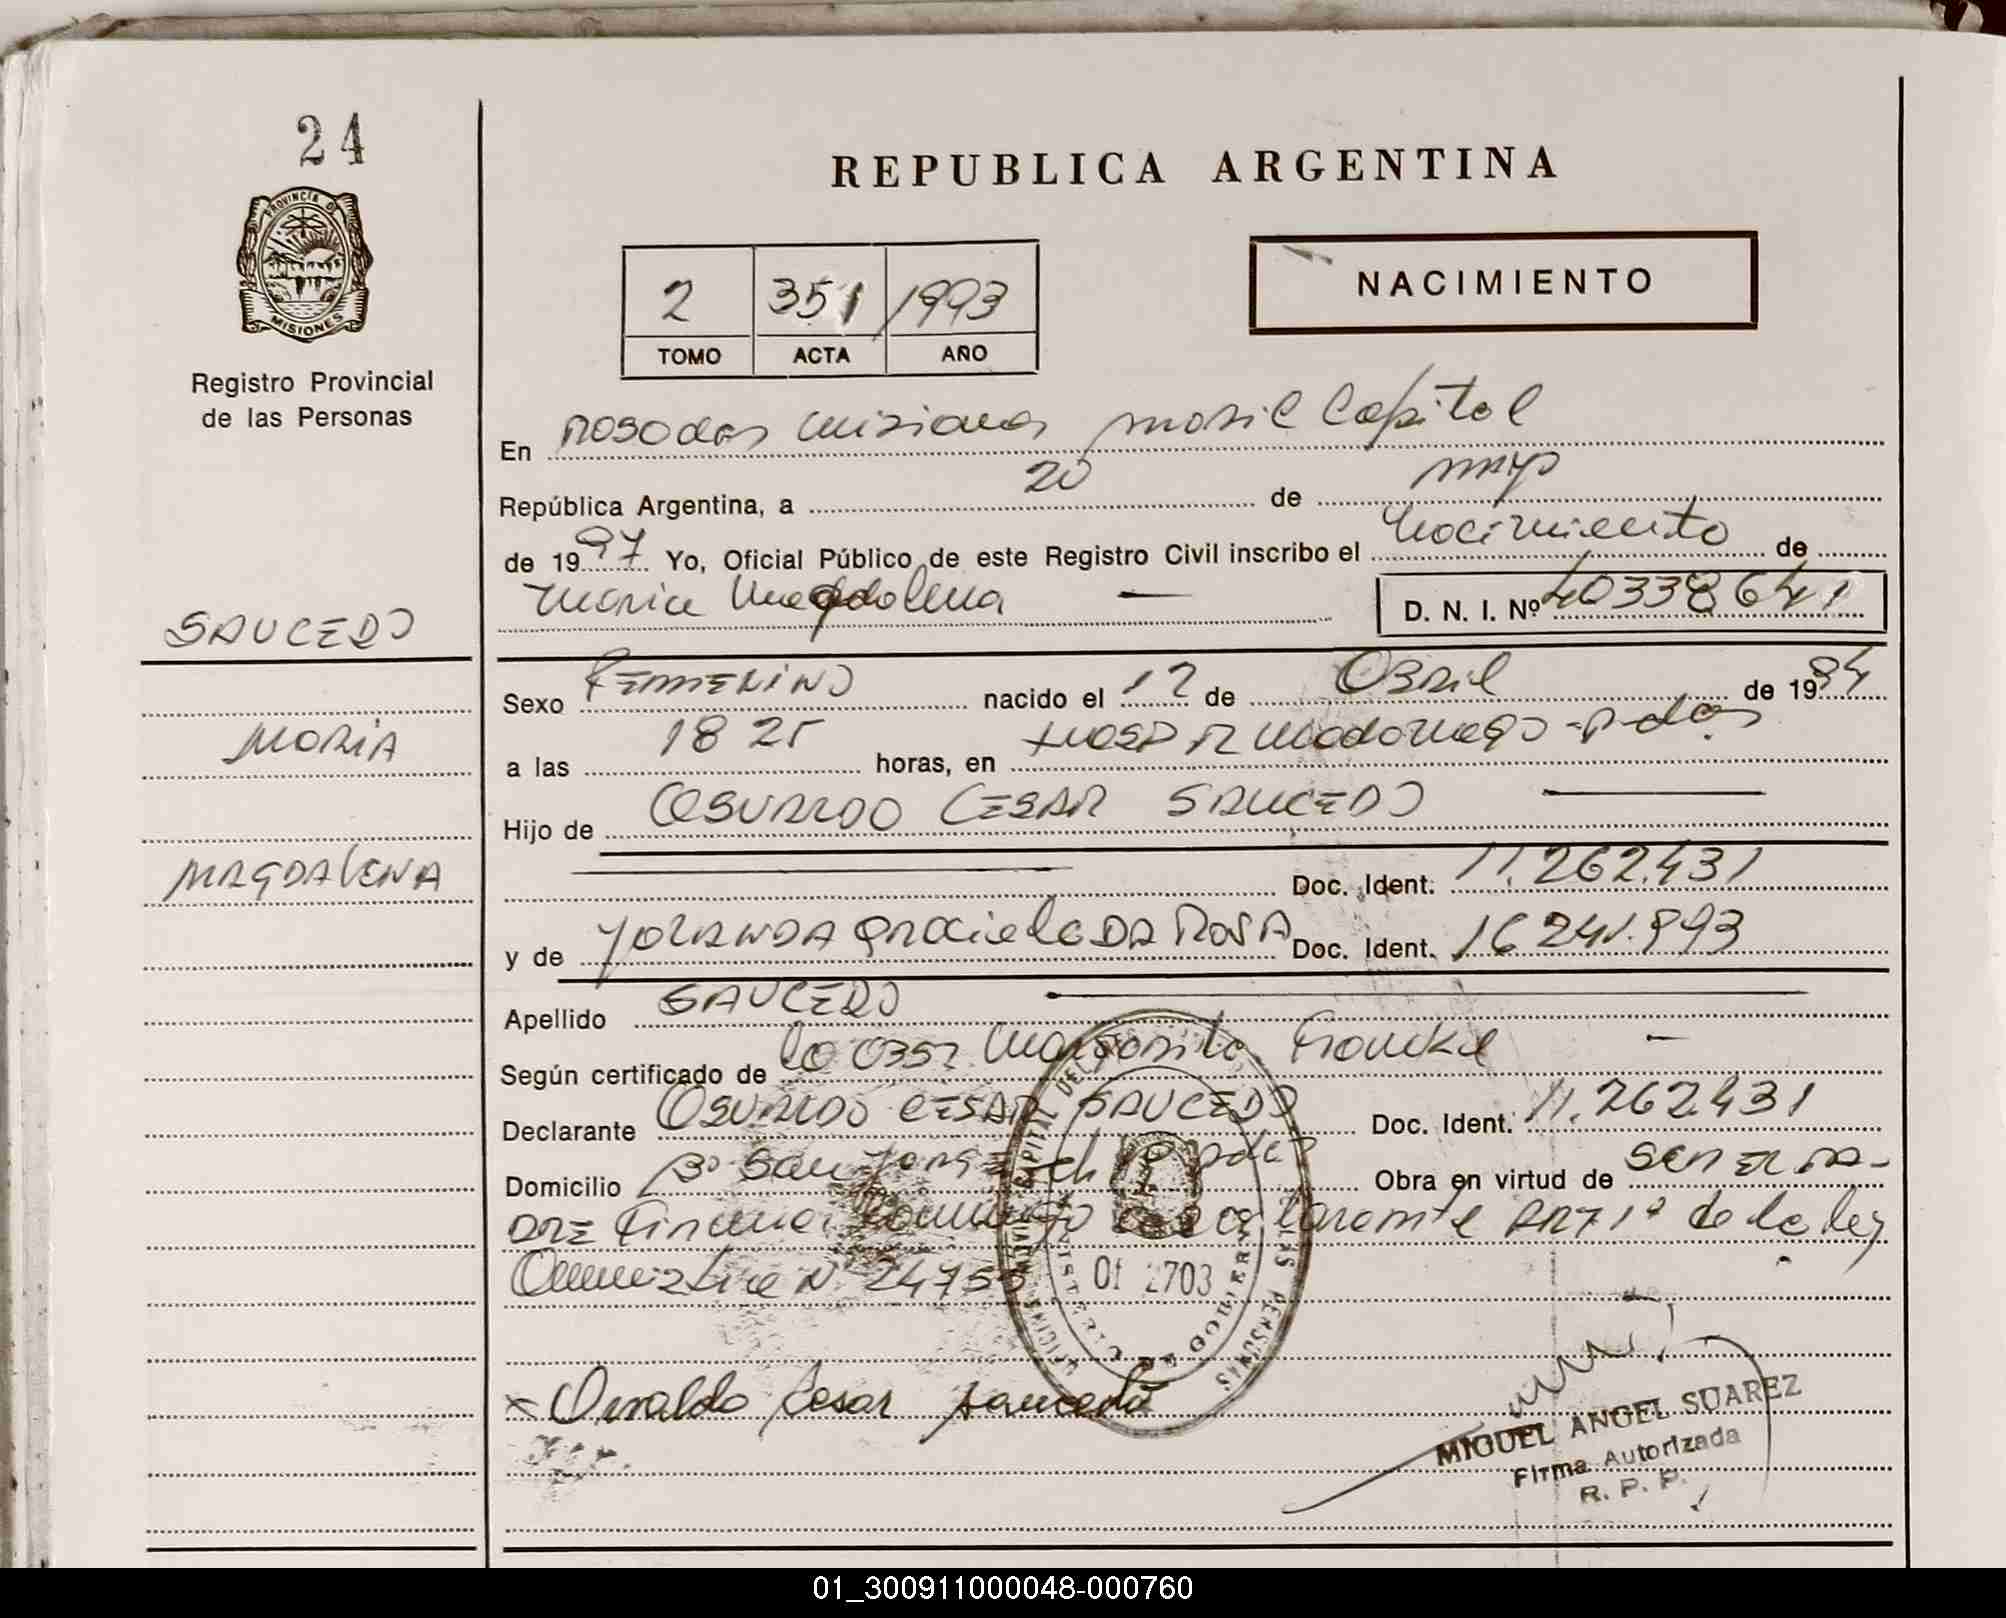 24
PROVINCIA DE
MISIONES
Registro Provincial
de las Personas
REPUBLICA ARGENTINA
2 351 1993
TOMO ACTA AÑO
NACIMIENTO
En Posadas Misiones movil Capital
República Argentina, a 20 de mayo
de 1997 Yo, Oficial Público de este Registro Civil inscribo el Nacimiento de
Maria Magdalena — D. N. I. Nº 40338641
SAUCEDO
Sexo FEMENINO nacido el 12 de Abril de 1994
MARIA
a las 18 25 horas, en Hosp R Madariaga - P-das
Hijo de OSVALDO CESAR SAUCEDO
MAGDALENA
Doc. Ident. 11.262.431
y de YOLANDA Graciela DA ROSA Doc. Ident. 16.241.893
Apellido SAUCEDO
Según certificado de la Obst. Margarita
Declarante OSVALDO CESAR SAUCEDO Doc. Ident. 11.262431
Domicilio Bº San Jorge ch Pdas Obra en virtud de ser el pa-
dre declarante ART 1º de la ley
Nº 24755
Of 2703
Osvaldo Cesar Saucedo
MIGUEL ANGEL SUAREZ
Firma Autorizada
R. P. P.
01_300911000048-000760